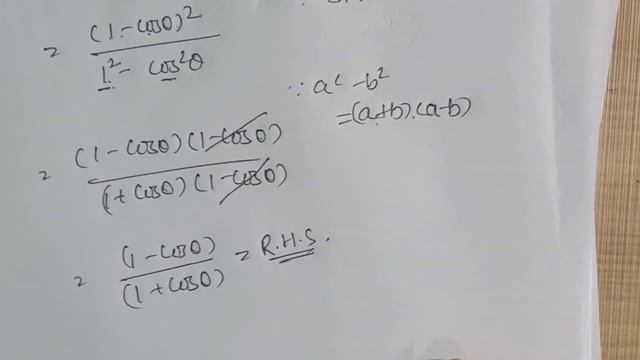 = (1-cosθ)² / 1² - cos²θ
∵ a² - b²
= (a+b).(a-b)
= (1-cosθ)(1-cosθ) / (1+cosθ)(1-cosθ)
= (1-cosθ) / (1+cosθ) = R.H.S.